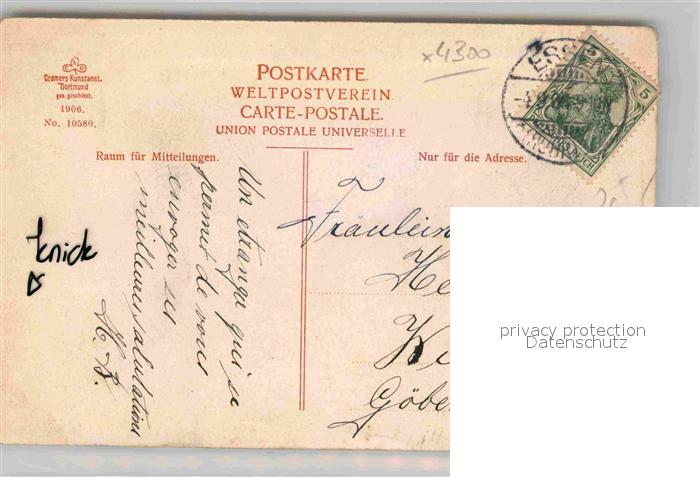 x4300
Cramers Kunstanst.
Dortmund
ges. geschützt.
1906.
No. 10580.
POSTKARTE.
WELTPOSTVEREIN.
CARTE-POSTALE.
UNION POSTALE UNIVERSELLE
ESS
5
5
REICH
Raum für Mitteilungen.
Nur für die Adresse.
Un etranga qui se
permet de vous
envoga ses
meilleures salutations
H. B.
Fräulein
He
Göbe
knick
privacy protection
Datenschutz